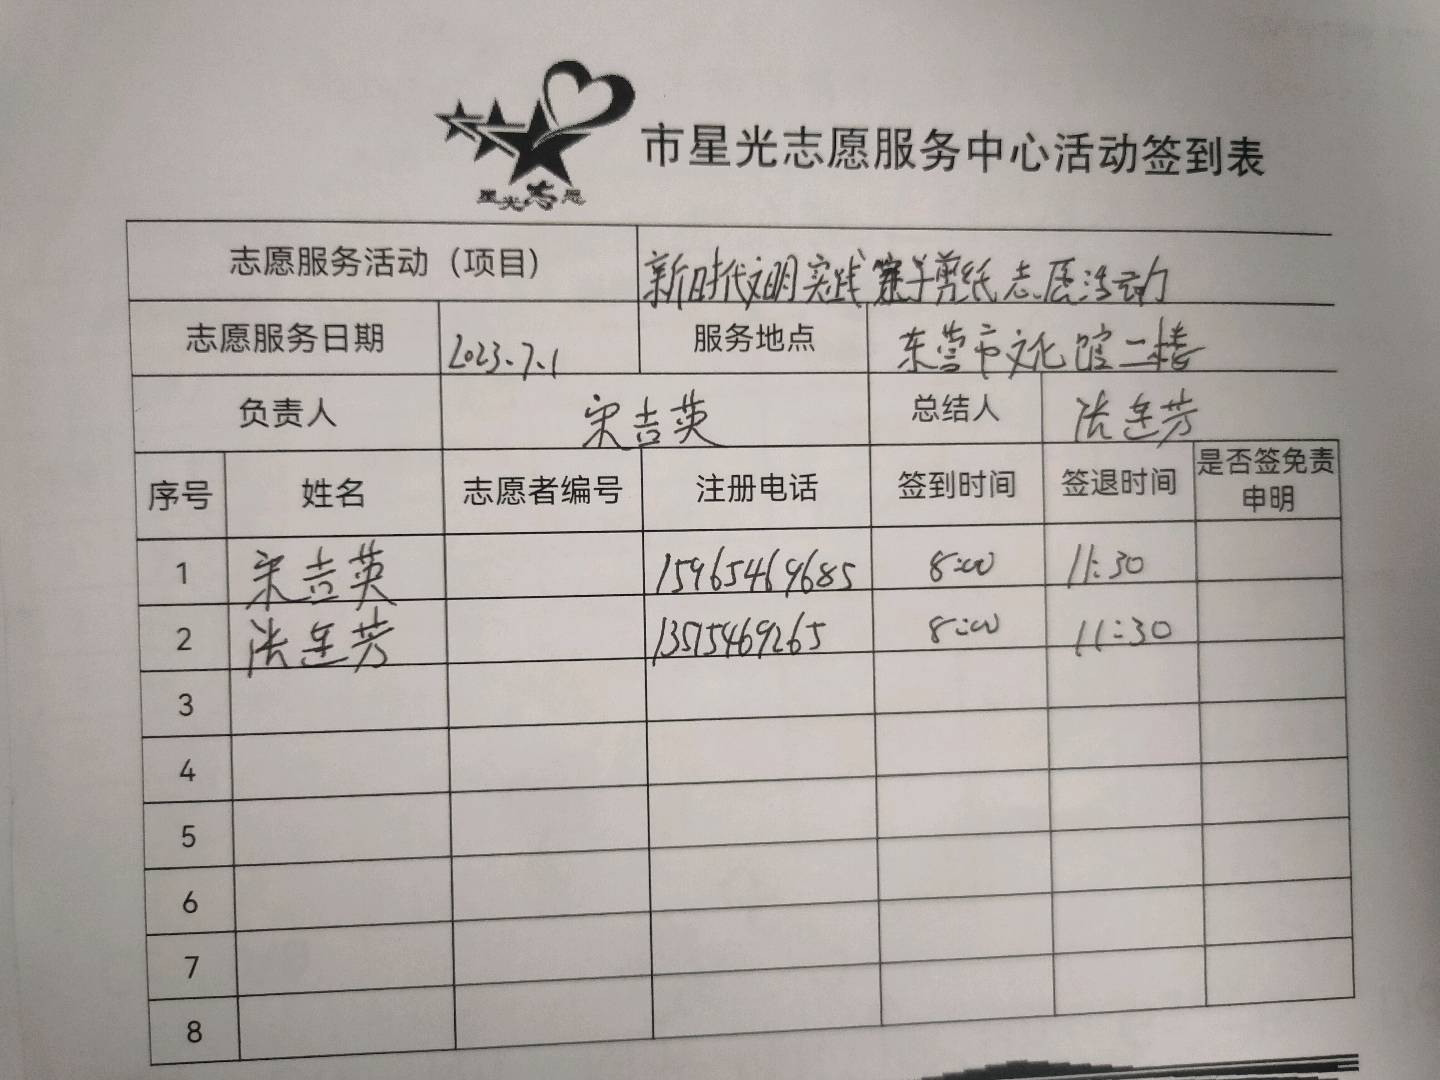 星光志愿
市星光志愿服务中心活动签到表
志愿服务活动（项目） 新时代文明实践 剪纸志愿活动
志愿服务日期 2023.7.1 服务地点 东营市文化馆二楼
负责人 宋吉英 总结人 莲芳
序号 姓名 志愿者编号 注册电话 签到时间 签退时间 是否签免责申明
1 宋吉英 15965469685 8:00 11:30
2 莲芳 13515469265 8:00 11:30
3
4
5
6
7
8